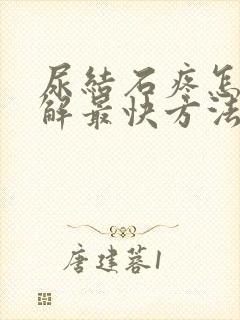 尿结石疼怎
解最快方法
唐建蓉1